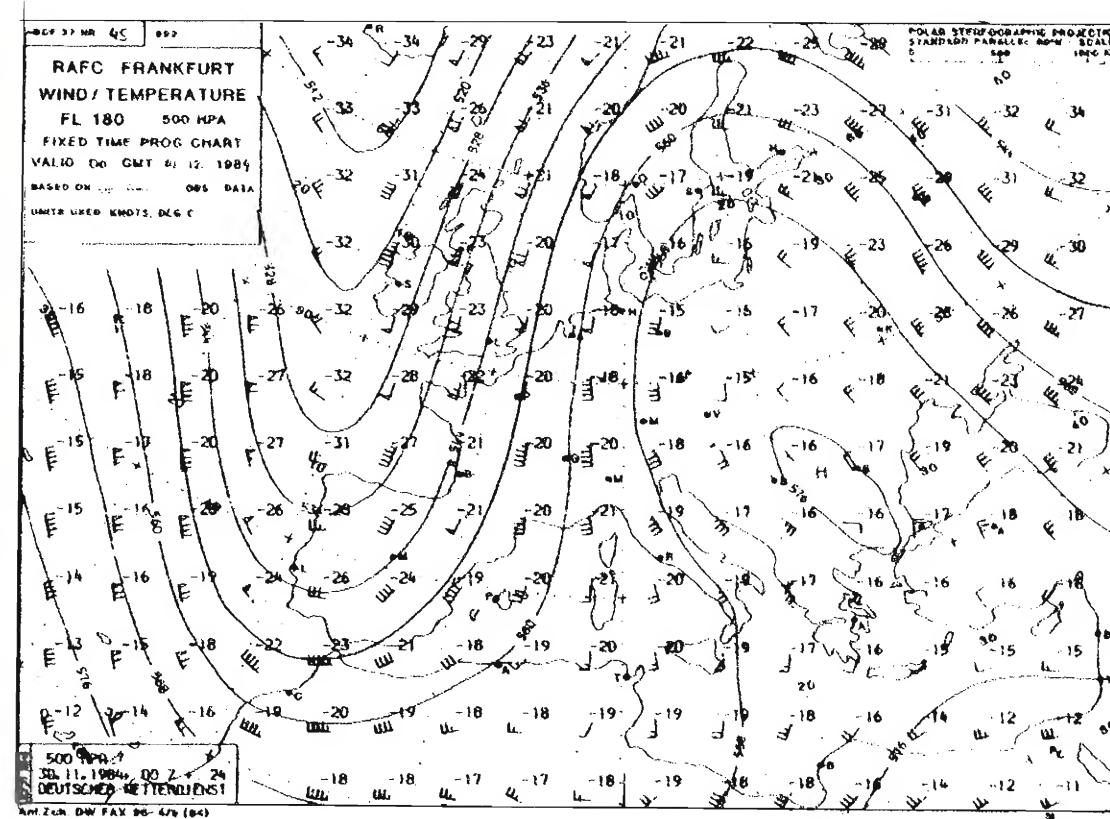 45
RAFC FRANKFURT
WIND/TEMPERATURE
FL 180 500 HPA
FIXED TIME PROG CHART
VALID 00 GMT 12. 1984
BASED ON OBS DATA
UNITS USED KNOTS, DEG C
POLAR STEREOGRAPHIC PROJECTIO
STANDARD PARALLEL SCALE
-34 -34 -29 -23 -21 -21 -22 -25 -29
-33 -33 -26 -21 -20 -20 -21 -23 -27 -31 -32 34
-32 -31 -24 -21 -18 -17 -19 -21 -25 -28 -31 -32
-32 -30 -23 -20 -17 -16 -16 -19 -23 -26 -29 -30
-16 -18 -20 -26 -32 -29 -23 -20 -18 -15 -15 -17 -20 -25 -26 -27
-15 -18 -20 -27 -32 -28 -22 -20 -18 -16 -15 -16 -18 -21 -23 -24
-15 -17 -20 -27 -31 -27 -21 -20 -20 -18 -16 -16 -17 -19 -20 -21
-15 -16 -20 -26 -28 -25 -21 -20 -21 -19 -17 -16 -16 -17 -18 18
-14 -16 -19 -24 -26 -24 -19 -20 -21 -20 -19 -17 -16 -16 16 -16
-13 -15 -18 -22 -23 -21 -18 -19 -20 -20 -19 -17 -16 -15 -15 -15
-12 -14 -16 -18 -20 -19 -18 -18 -19 -19 -19 -18 -16 -14 -12 -12
-18 -18 -17 -17 -18 -19 -18 -18 -16 -14 -12 -11
512
520
528
536
544
560
568
576
H
500 HPA
30.11.1984, 00 Z + 24
DEUTSCHER WETTERDIENST
DW FAX